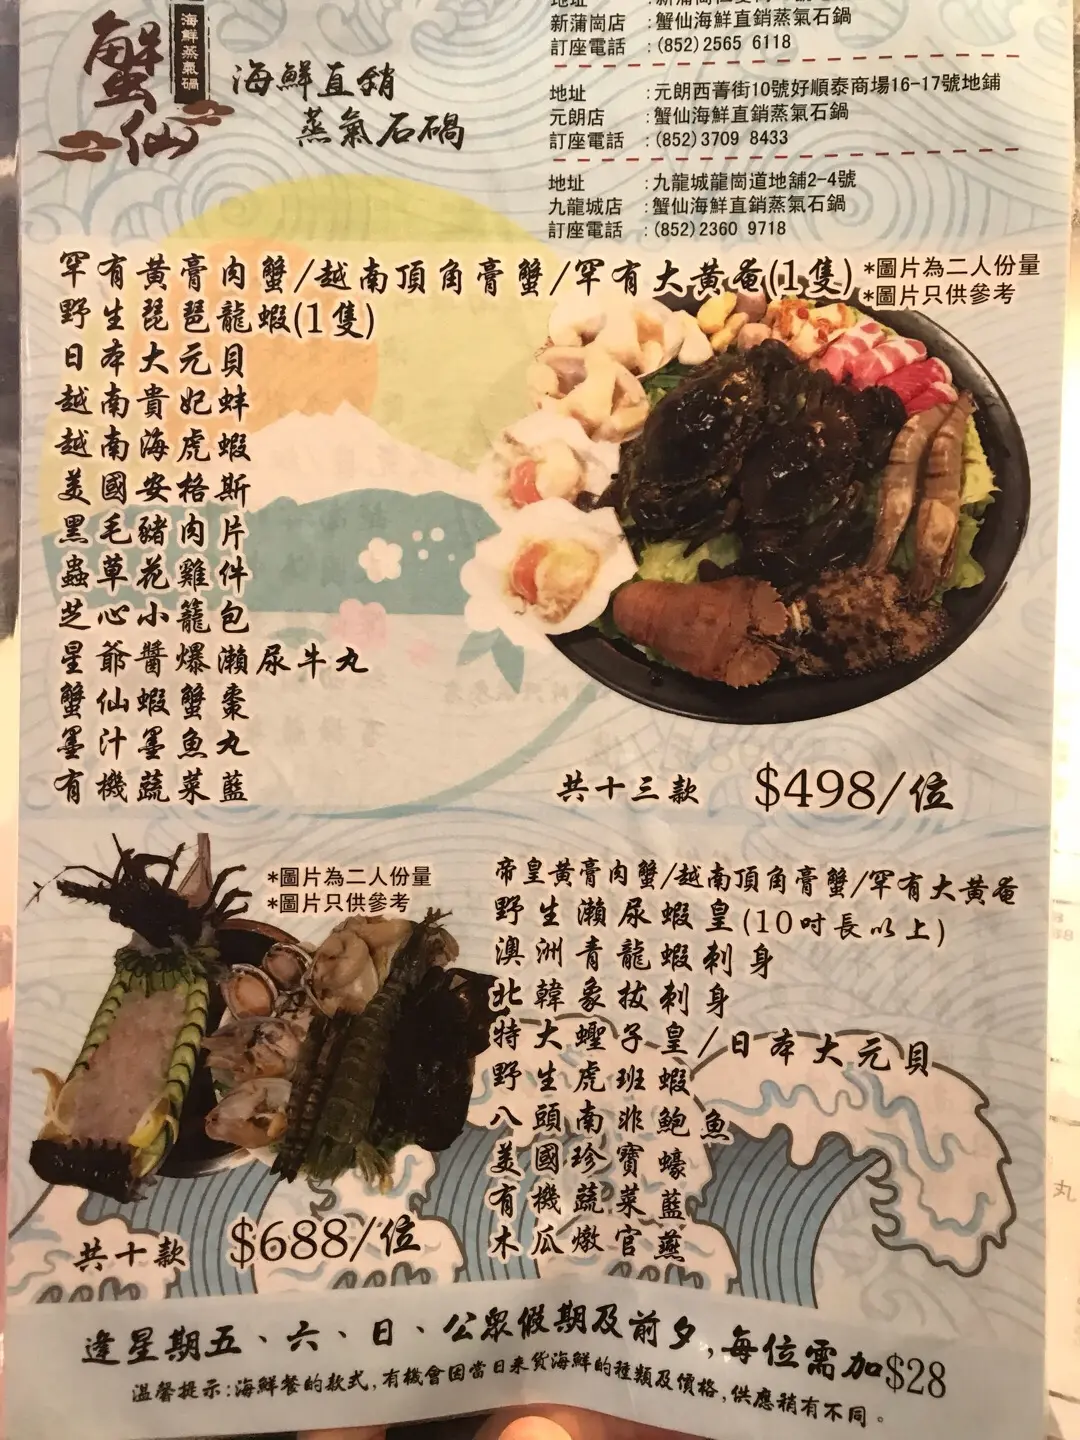 海鮮蒸氣鍋
蟹仙
海鮮直銷
蒸氣石鍋
新蒲崗店 :蟹仙海鮮直銷蒸氣石鍋
訂座電話 :(852)2565 6118
地址 :元朗西菁街10號好順泰商場16-17號地鋪
元朗店 :蟹仙海鮮直銷蒸氣石鍋
訂座電話 :(852)3709 8433
地址 :九龍城龍崗道地舖2-4號
九龍城店 :蟹仙海鮮直銷蒸氣石鍋
訂座電話 :(852)2360 9718
罕有黃膏肉蟹/越南頂角膏蟹/罕有大黃奄(1隻)
*圖片為二人份量
*圖片只供參考
野生琵琶龍蝦(1隻)
日本大元貝
越南貴妃蚌
越南海虎蝦
美國安格斯
黑毛豬肉片
蟲草花雞件
芝心小籠包
星爺醬爆瀨尿牛丸
蟹仙蝦蟹棗
墨汁墨魚丸
有機蔬菜籃
共十三款 $498/位
*圖片為二人份量
*圖片只供參考
帝皇黃膏肉蟹/越南頂角膏蟹/罕有大黃奄
野生瀨尿蝦皇(10吋長以上)
澳洲青龍蝦刺身
北韓象拔刺身
特大蟶子皇/日本大元貝
野生虎班蝦
八頭南非鮑魚
美國珍寶蠔
有機蔬菜籃
木瓜燉官燕
共十款 $688/位
逢星期五、六、日、公眾假期及前夕,每位需加$28
溫馨提示:海鮮餐的款式,有機會因當日來貨海鮮的種類及價格,供應稍有不同。